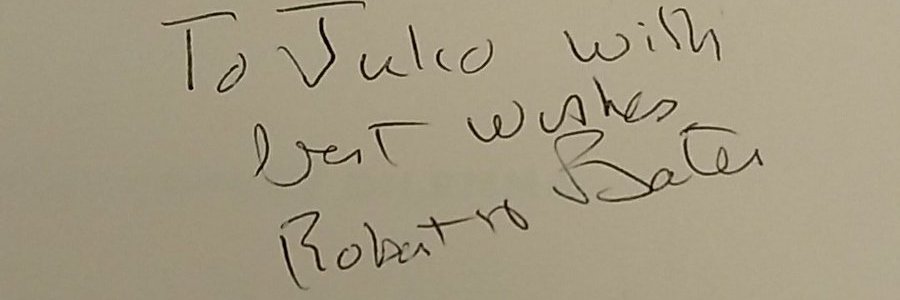 To Julio with
best wishes
Robert Bates